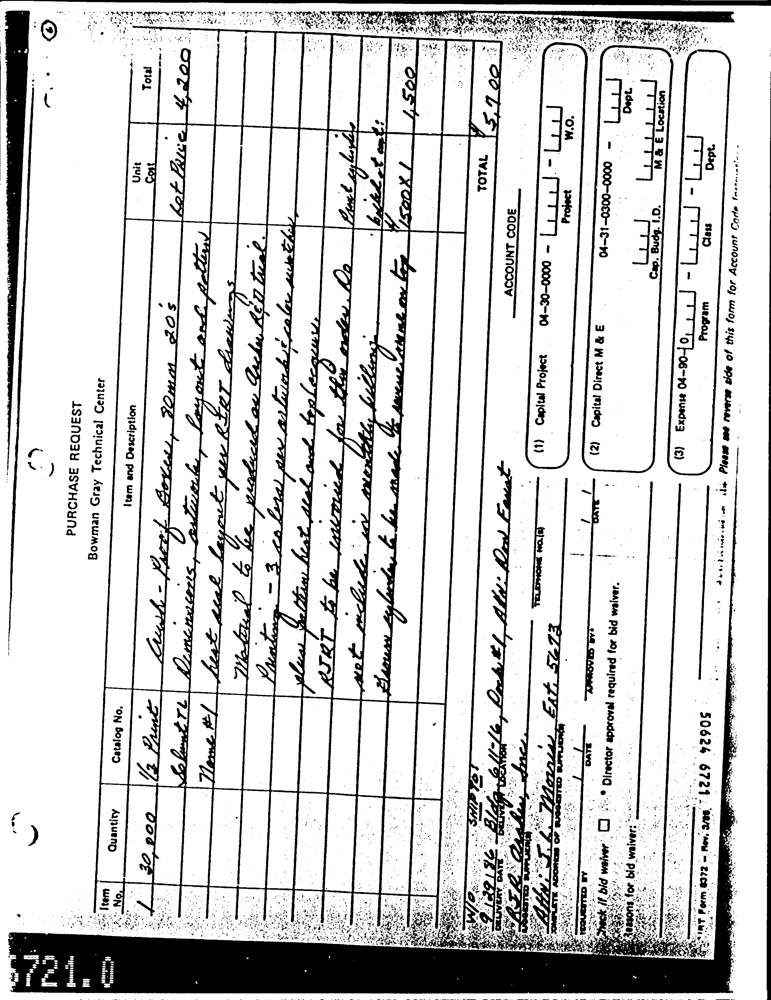 PURCHASE REQUEST
Bowman Gray Technical Center
Item No. Quantity Catalog No. Item and Description Unit Cost Total
1 30,000 1/2 Print Crush-Proof Boxes, 80mm 20's Lot Price 4,200
Dimensions, artwork, layout and pattern
Name #1 heat seal layout per RJRT drawings
Material to be produced on Archer
Printing - 3 colors per artwork & color swatches,
plus pattern heat seal and top lacquer.
RJRT to be invoiced for this order. Do Print cylinders
not include in monthly billing.
cylinder to be made on top $1500 X 1 1,500
TOTAL $5,700
W/O SHIP TO:
9/29/86 Bldg 611-16, Dock #1, Attn: Don Faust
DELIVERY DATE DELIVERY LOCATION
RJR Archer, Inc.
SUGGESTED SUPPLIER(S) TELEPHONE NO.(S)
Attn: J. L. Morris, Ext. 5673
COMPLETE ADDRESS OF SUGGESTED SUPPLIER(S)
REQUESTED BY DATE APPROVED BY* DATE
Check if bid waiver * Director approval required for bid waiver.
Reasons for bid waiver:
ACCOUNT CODE
(1) Capital Project 04-30-0000 - Project - W.O.
(2) Capital Direct M & E 04-31-0300-0000 - Dept.
Cap. Budg. I.D. M & E Location
(3) Expense 04-90-0 Program - Class - Dept.
Please see reverse side of this form for Account Code
RJRT Form 8372 - Rev. 3/86
50624 6721
6721.0